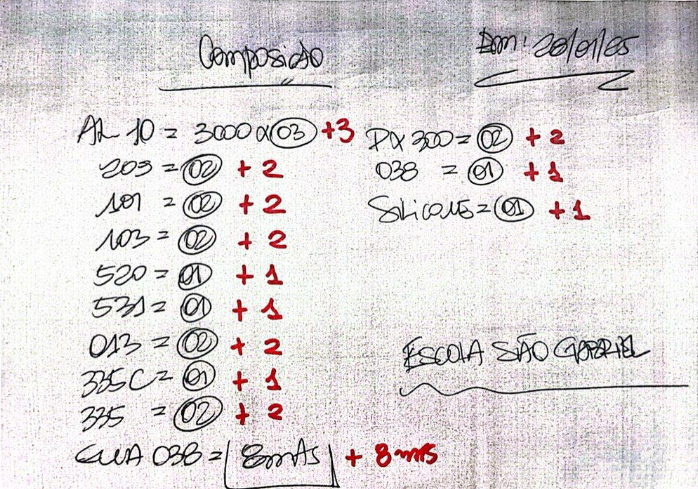 Composição
Em: 28/01/25
AL 10 = 3000 x 03 +3
203 = 02 +2
101 = 02 +2
103 = 02 +2
520 = 01 +1
531 = 01 +1
013 = 02 +2
335C = 01 +1
335 = 02 +2
038 = 8mts +8mts
PX 300 = 02 +2
038 = 01 +1
Silicone = 01 +1
ESCOLA SÃO GABRIEL